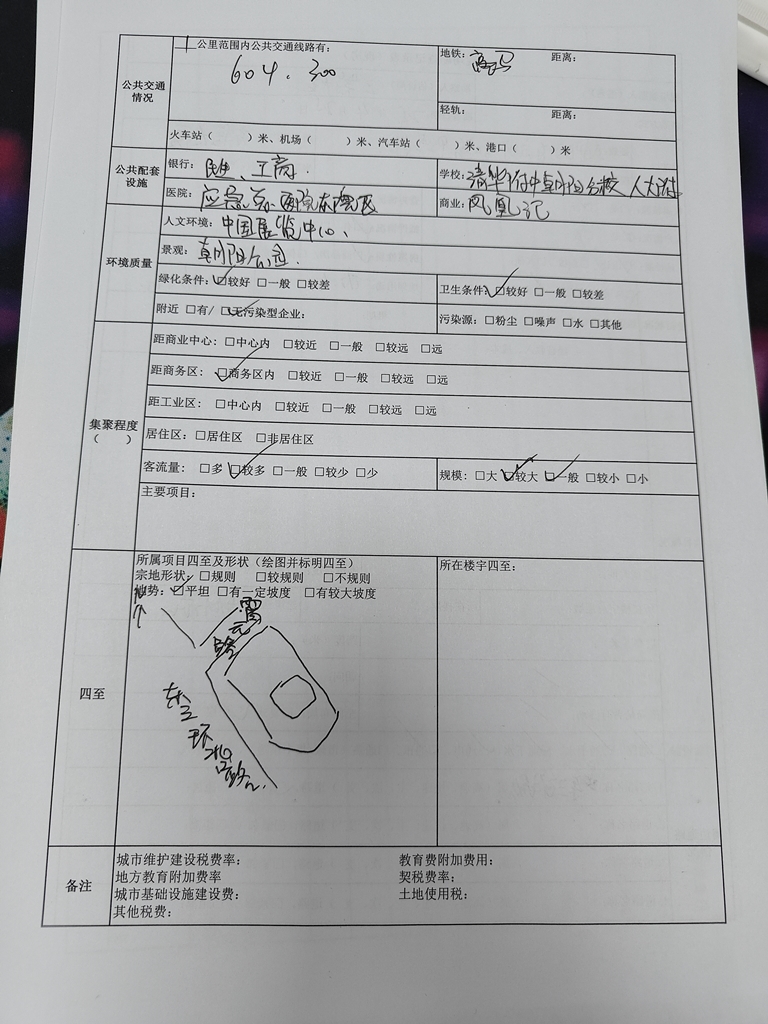 1公里范围内公共交通线路有：
604、300
地铁： 距离：
公共交通情况
轻轨： 距离：
火车站（ ）米、机场（ ）米、汽车站（ ）米、港口（ ）米
公共配套设施
银行：民生、工商．
学校：清华附中朝阳分校 人大附
医院：应急总医院
商业：凤凰汇
人文环境：中国展览中心、
环境质量
景观：朝阳公园．
绿化条件：☑较好 □一般 □较差
卫生条件：☑较好 □一般 □较差
附近 □有/ ☑无污染型企业：
污染源：□粉尘 □噪声 □水 □其他
距商业中心：□中心内 □较近 □一般 □较远 □远
距商务区：☑商务区内 □较近 □一般 □较远 □远
集聚程度（ ）
距工业区：□中心内 □较近 □一般 □较远 □远
居住区：□居住区 □非居住区
客流量：□多 ☑较多 □一般 □较少 □少
规模：□大 ☑较大 ☑一般 □较小 □小
主要项目：
所属项目四至及形状（绘图并标明四至）
所在楼宇四至：
宗地形状：□规则 □较规则 □不规则
地势：☑平坦 □有一定坡度 □有较大坡度
北
四至
东三环北路
备注
城市维护建设税费率： 教育费附加费用：
地方教育附加费率 契税费率：
城市基础设施建设费： 土地使用税：
其他税费：